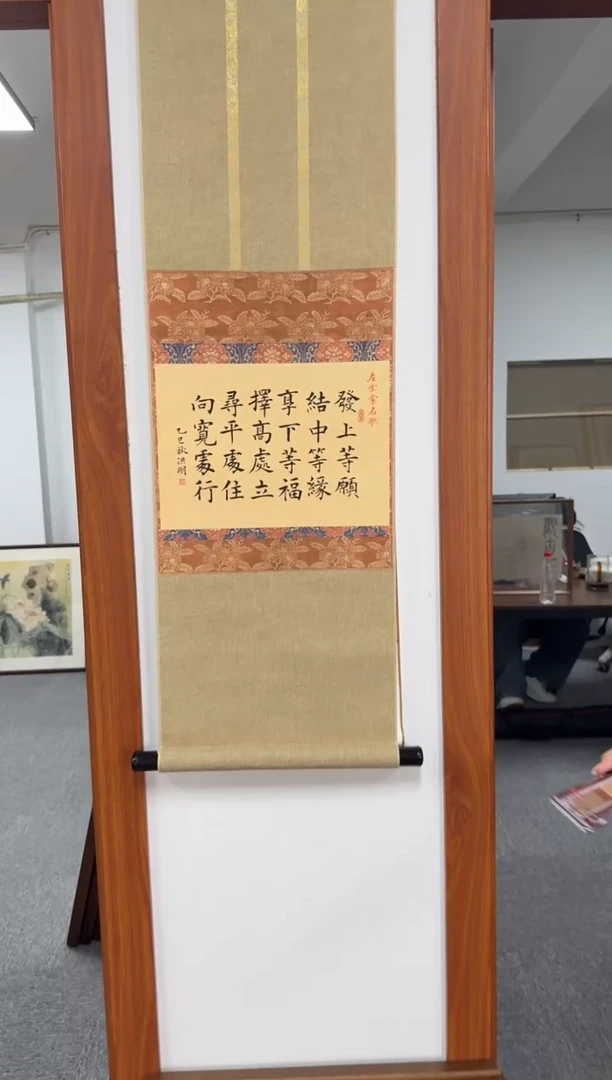 左宗棠名联
發上等願
結中等緣
享下等福
擇高處立
尋平處住
向寬處行
乙巳秋洪明